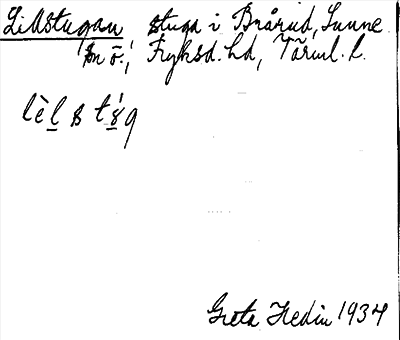 Lillstugan stuga i Bråred, Sunne
sn ö., Fryksd. hd, Värml. l.
Greta Hedin 1934